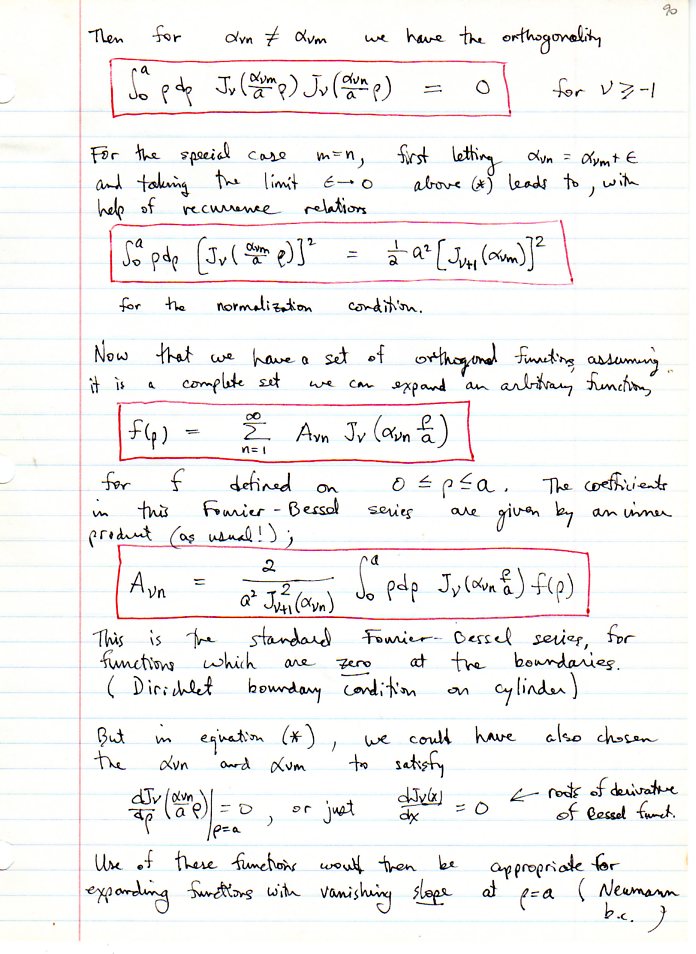 90
Then for ανn ≠ ανm we have the orthogonality
∫₀ᵃ ρ dρ Jν(ανm/a ρ) Jν(ανn/a ρ) = 0 for ν ≥ -1
For the special case m=n, first letting ανn = ανm + ε
and taking the limit ε→0 above (*) leads to, with
help of recurrence relations
∫₀ᵃ ρ dρ [Jν(ανm/a ρ)]² = 1/2 a² [Jν+1(ανm)]²
for the normalization condition.
Now that we have a set of orthogonal functions, assuming
it is a complete set we can expand an arbitrary function,
f(ρ) = ∞ Σ n=1 Aνn Jν(ανn ρ/a)
for f defined on 0 ≤ ρ ≤ a. The coefficients
in this Fourier-Bessel series are given by an inner
product (as usual!);
Aνn = 2/(a² J²ν+1(ανn)) ∫₀ᵃ ρ dρ Jν(ανn ρ/a) f(ρ)
This is the standard Fourier-Bessel series, for
functions which are zero at the boundaries.
(Dirichlet boundary condition on cylinder)
But in equation (*), we could have also chosen
the ανn and ανm to satisfy
dJν/dρ (ανn/a ρ)|ρ=a = 0, or just dJν(x)/dx = 0 ← roots of derivative
of Bessel funct.
Use of these functions would then be appropriate for
expanding functions with vanishing slope at ρ=a (Neumann
b.c.)